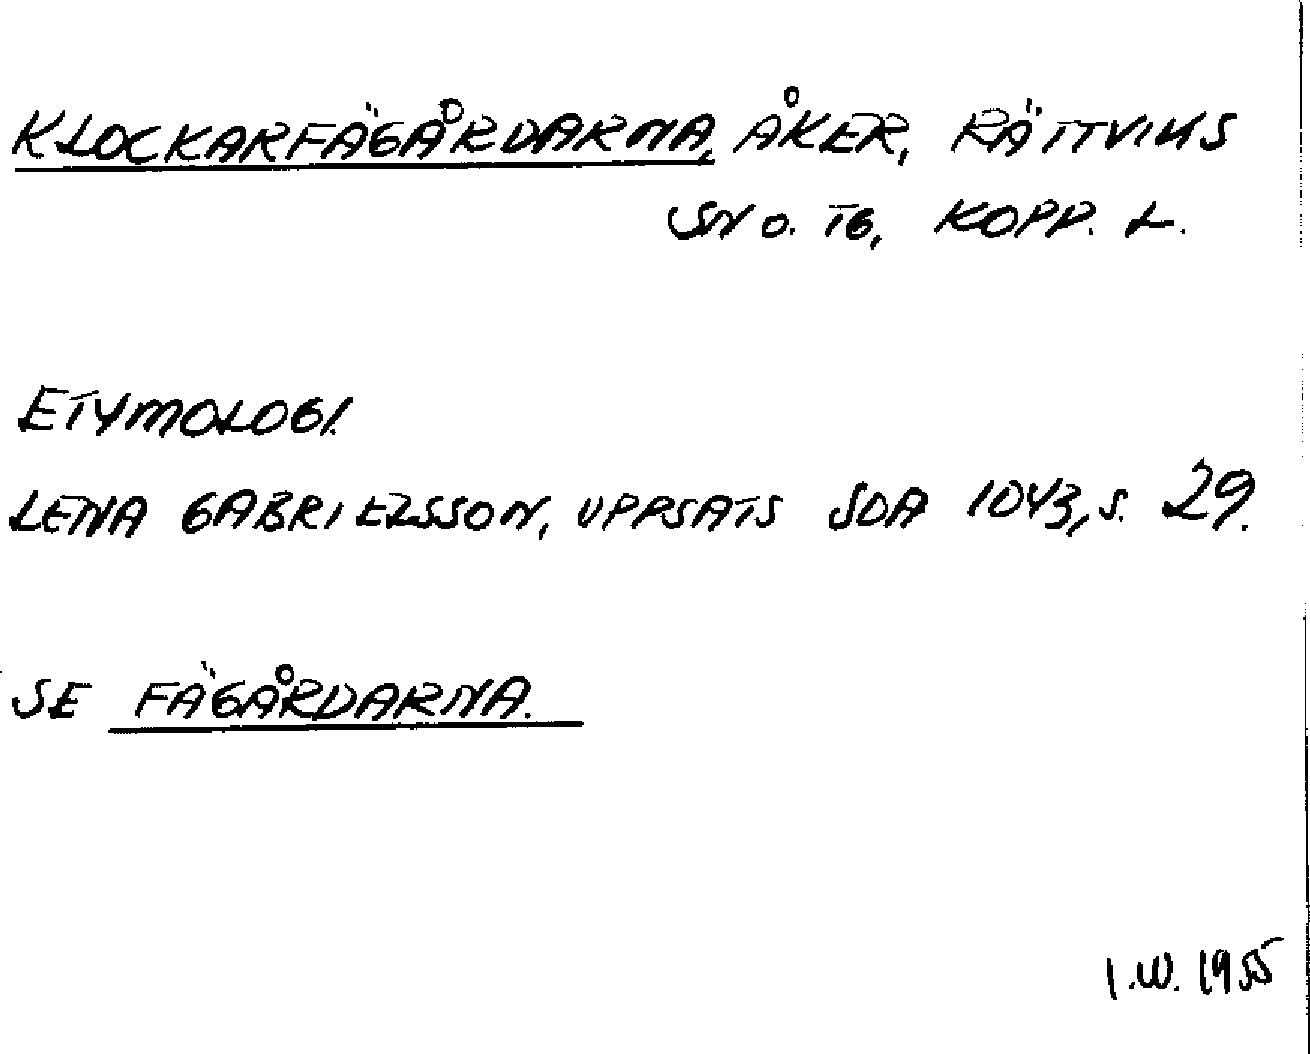 KLOCKARFÄGÅRDARNA, ÅKER, RÄTTVIKS
SN O. TG, KOPP. L.
ETYMOLOGI.
LENA GABRIELSSON, UPPSATS SOA 1043, S. 29.
SE FÄGÅRDARNA.
I.W. 1955